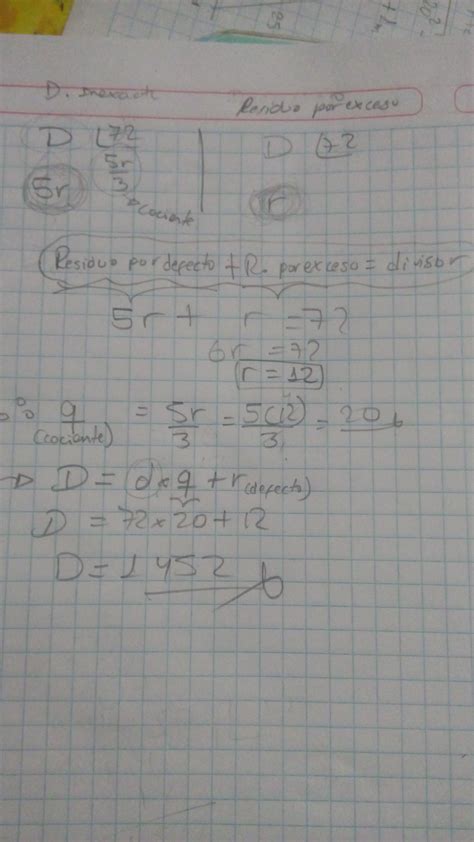 D. Inexacta Residuo por exceso
D 72 D 72
5r 5r/3 r
cociente
Residuo por defecto + R. por exceso = divisor
5r + r = 72
6r = 72
r = 12
∴ q = 5r/3 = 5(12)/3 = 20
(cociente)
→ D = d × q + r(defecto)
D = 72 × 20 + 12
D = 1452